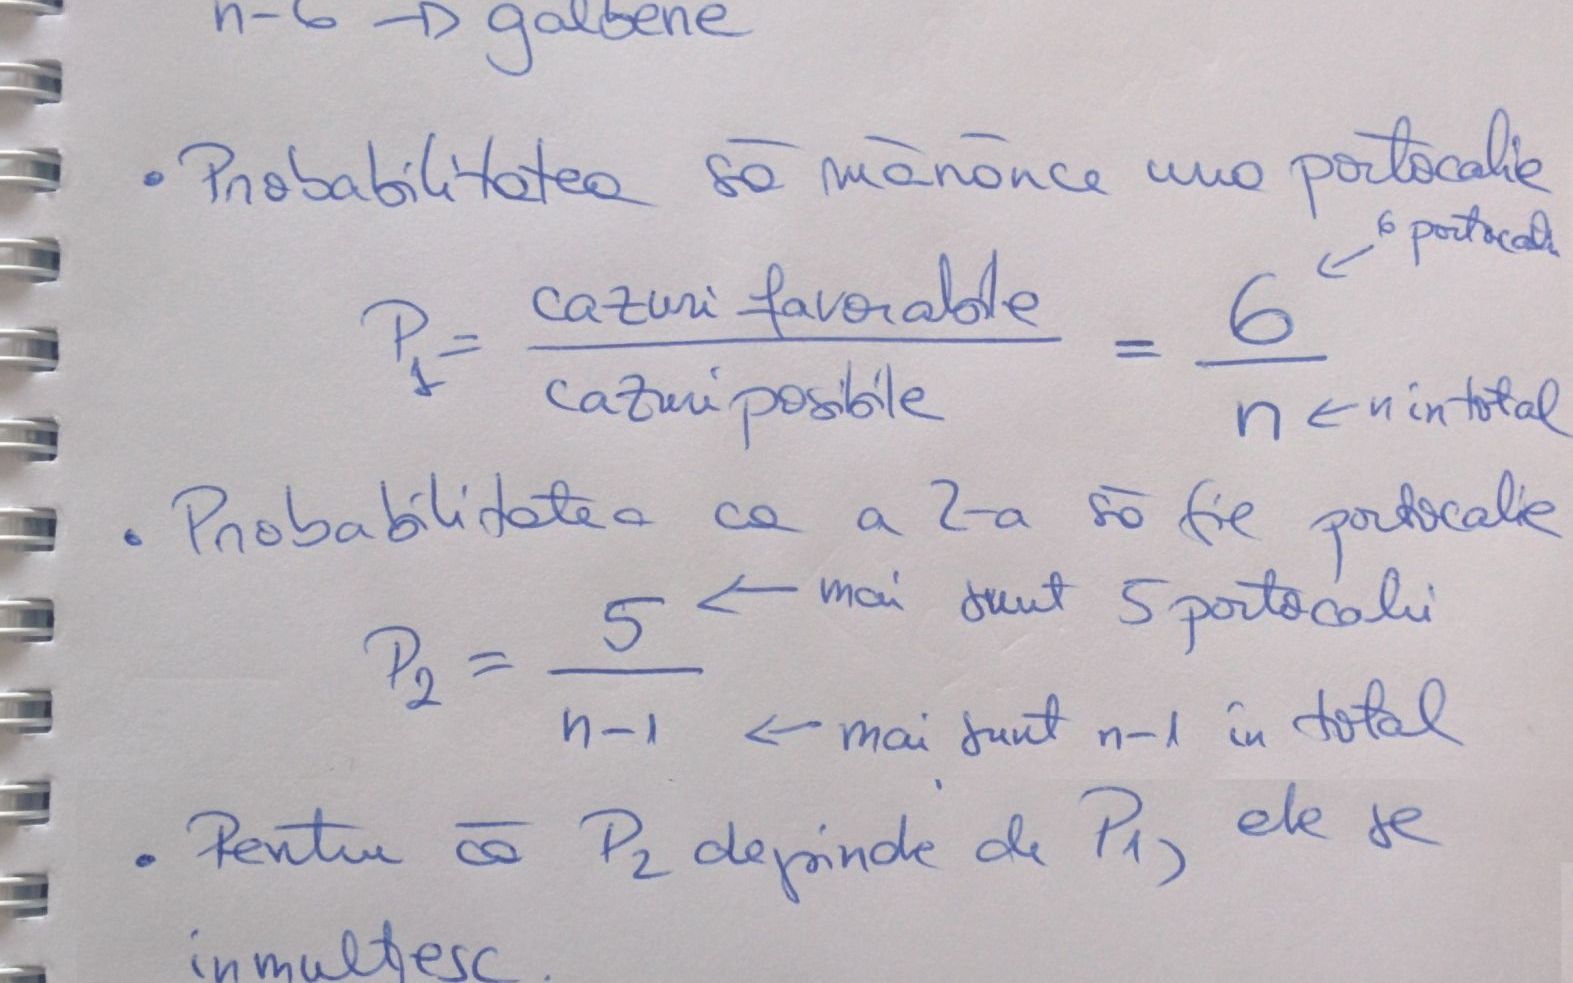 n-6 → galbene
• Probabilitatea să mănânce una portocalie
6 portocalii
P₁ = cazuri favorabile / cazuri posibile = 6 / n ← n in total
• Probabilitatea ca a 2-a să fie portocalie
P₂ = 5 / n-1
← mai sunt 5 portocalii
← mai sunt n-1 în total
• Pentru că P₂ depinde de P₁, ele se
inmulțesc.